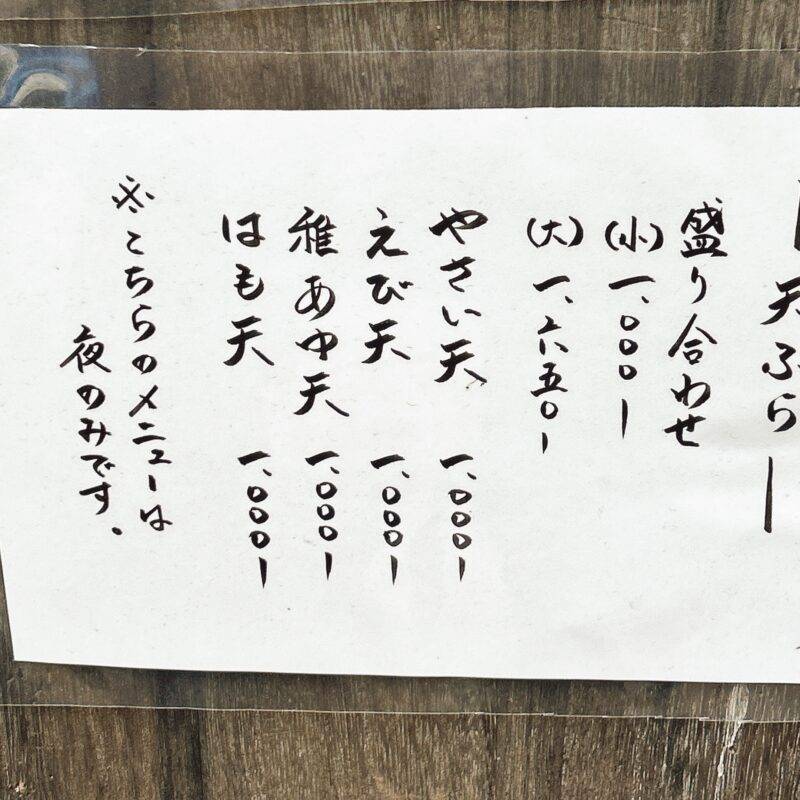 天ぷら
盛り合わせ
(小) 一、〇〇〇ー
(大) 一、六五〇ー
やさい天 一、〇〇〇ー
えび天 一、〇〇〇ー
雅あゆ天 一、〇〇〇ー
はも天 一、〇〇〇ー
※こちらのメニューは
夜のみです。